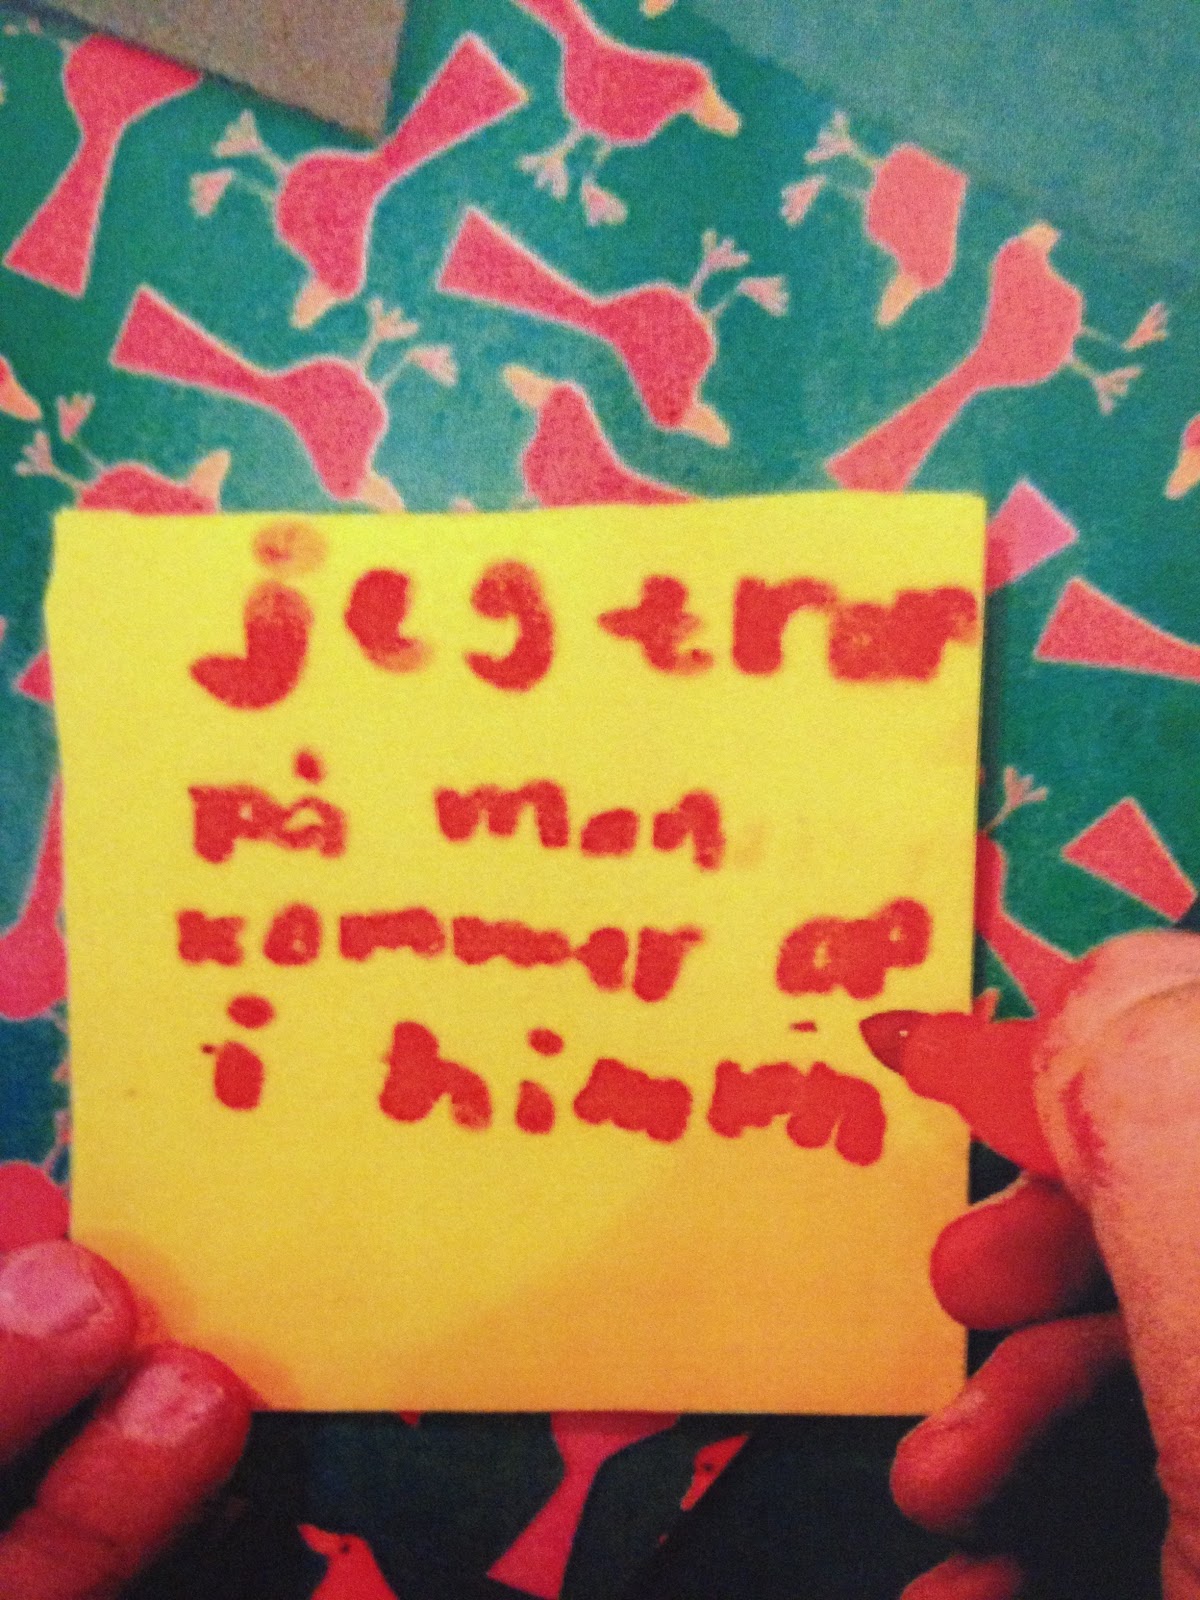 jeg tror
på man
kommer op
i himmn